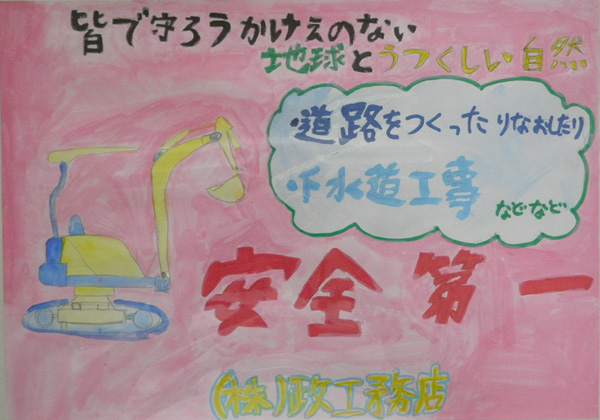 皆で守ろうかけえのない
地球とうつくしい自然
・道路をつくったりなおしたり
・下水道工事
などなど
安全第一
(株)政工務店